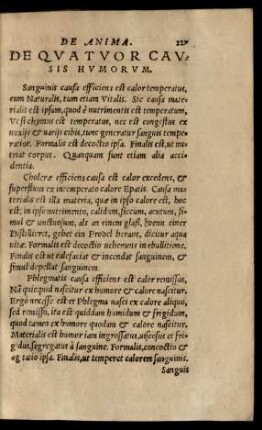 DE ANIMA.
DE QVATVOR CAV-
SIS HVMORVM.
Sanguinis causa efficiens est calor temperatus,
cum Naturalis, tum etiam Vitalis. Sic causa mate-
rialis est ipsam, quod è nutrimentis est temperatum,
Vt si chymus est temperatus, nec est congestus ex
noxijs & uarijs cibis, tunc generatur sanguis tempe-
ratior. Formalis est decoctio ipsa. Finalis est, ut nu-
triat corpus. Quanquam sunt etiam alia acci-
dentia.
Choleræ efficiens causa est calor excedens, &
superfluus ex intemperato calore Epatis. Causa ma-
terialis est illa materia, quæ in ipso calore est, hoc
est, in ipso nutrimento, calidum, siccum, acutum, si-
mul & unctuosum, als an einem glaß, Wenn einer
Distilliert, gehet ein Probel herant, dicitur aqua
uitæ. Formalis est decoctio uehemens in ebullitione.
Finalis est ut calefaciat & incendat sanguinem, &
simul depellat sanguinem.
Phlegmatis causa efficiens est calor remissus.
Nã quicquid nascitur ex humore & calore nascitur.
Ergo necesse est ex Phlegma nasci ex calore aliquo,
sed remisso, ita est quiddam humidum & frigidum,
quod tamen ex humore quodam & calore nascitur.
Materialis est humor iam ingrossatus, uiscosus et fri
gidus, segregatus à sanguine. Formalis, concoctio &
ogitatio ipsa. Finalis, ut temperet calorem sanguinis.
Sanguis